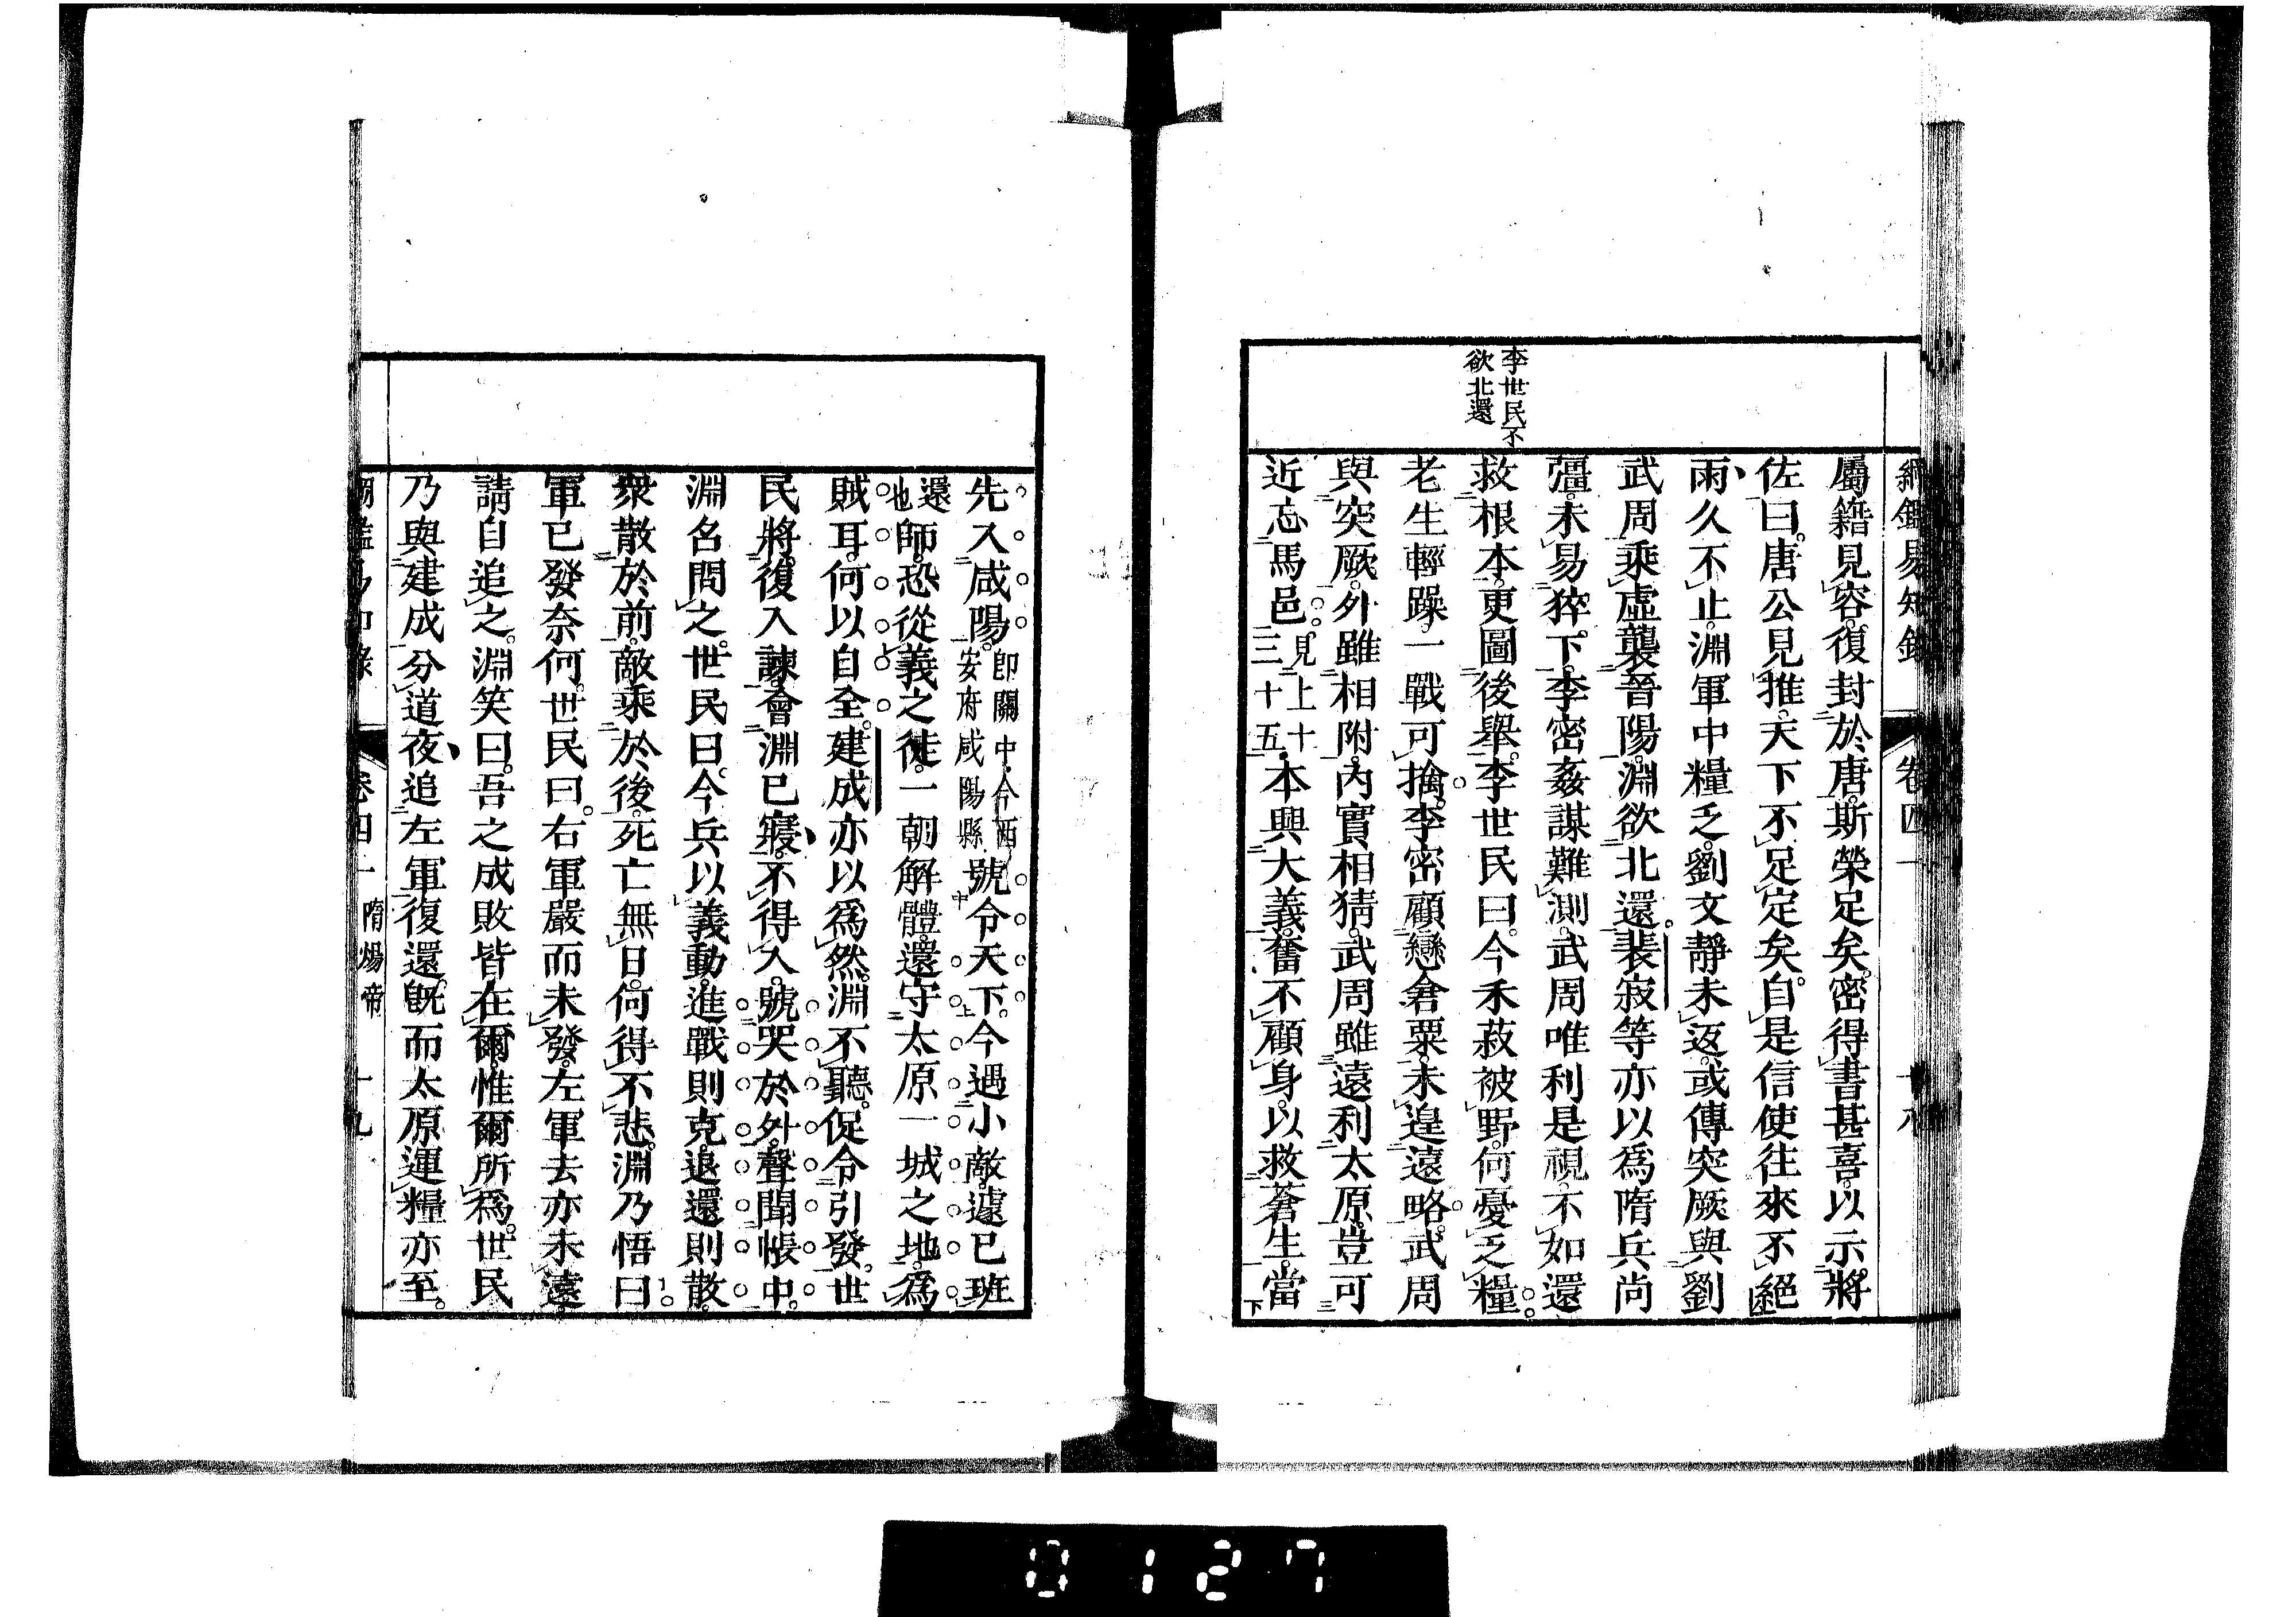 綱鑑易知錄 卷四一 十八
屬籍見容。復封於唐。斯榮足矣。密得書甚喜。以示將
佐曰。唐公見推。天下不足定矣。自是信使往來不絕
雨久不止。淵軍中糧乏。劉文靜未返。或傳突厥與劉
武周乘虛襲晉陽。淵欲北還。裴寂等亦以爲隋兵尚
彊。未易猝下。李密姦謀難測。武周唯利是視。不如還
李世民不
欲北還
救根本。更圖後舉。李世民曰。今禾菽被野。何憂乏糧。
老生輕躁。一戰可擒。李密顧戀倉粟。未遑遠略。武周
與突厥。外雖相附。內實相猜。武周雖遠利太原。豈可
近忘馬邑。見上十三十五本興大義。奮不顧身。以救蒼生。當
先入咸陽。卽關中今西安府咸陽縣號令天下。今遇小敵。遽已班
師。還也恐從義之徒。一朝解體。還守太原一城之地。爲
賊耳。何以自全。建成亦以爲然。淵不聽。促令引發。世
民將復入諫。會淵已寢。不得入。號哭於外。聲聞帳中。
淵名問之。世民曰。今兵以義動。進戰則克。退還則散。
衆散於前。敵乘於後。死亡無日。何得不悲。淵乃悟曰。
軍已發奈何。世民曰。右軍嚴而未發。左軍去亦未遠
請自追之。淵笑曰。吾之成敗皆在爾。惟爾所爲。世民
乃與建成分道夜追左軍復還。旣而太原運糧亦至。
卷四一 隋煬帝 十九
0127